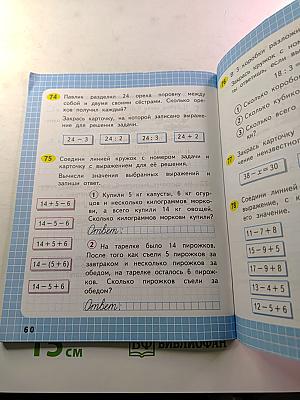 74 Павлик разделил 24 ореха поровну между
собой и двумя своими сёстрами. Сколько оре-
хов получил каждый?
Закрась карточку, на которой записано выраже-
ние для решения задачи.
24 − 3 24 : 2 24 : 3 24 + 2
75 Соедини линией кружок с номером задачи и
карточку с выражением для её решения.
Вычисли значения выбранных выражений и
запиши ответ.
1 Купили 5 кг капусты, 6 кг огур-
цов и несколько килограммов морко-
ви, а всего купили 14 кг овощей.
Сколько килограммов моркови купили?
Ответ:
2 На тарелке было 14 пирожков.
После того как съели 5 пирожков за
завтраком и несколько пирожков за
обедом, на тарелке осталось 6 пирож-
ков. Сколько пирожков съели за
обедом?
Ответ:
14 + 5 − 6
14 − 5 − 6
14 + 5 + 6
14 − (5 + 6)
14 − 5 + 6
60
76 В 3 коробки разложи
Закрась кружок с ном
ответишь, если вы
18 : 3 =
1 Сколько короб
2 Сколько кубко
3 Сколько всего
ки?
77 Закрась карточку
ние неизвестног
38 − x = 30
78 Соедини линие
выражение, с к
его значение.
11 − 7 + 8
15 − 9 + 5
17 − 9 + 8
13 − 4 + 5
12 − 5 + 6
15 см
БФ БИБЛИОФАН